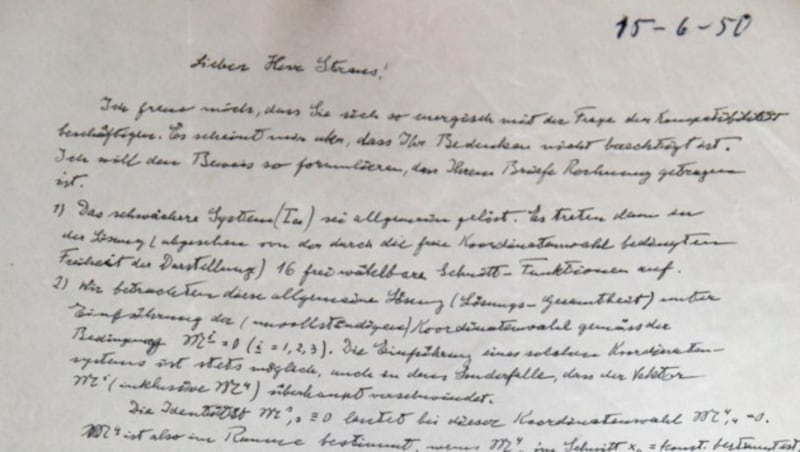 15-6-50
Lieber Herr Straus!
Ich freue mich, dass Sie sich so energisch mit der Frage der Kompatibilität
beschäftigen. Es scheint mir aber, dass Ihr Bedenken nicht berechtigt ist.
Ich will den Beweis so formulieren, dass Ihrem Briefe Rechnung getragen
ist.
1) Das schwächere System (Ia) sei allgemein gelöst. Es treten dann in
der Lösung (abgesehen von der durch die freie Koordinatenwahl bedingten
Freiheit der Darstellung) 16 frei wählbare Schnitt-Funktionen auf.
2) Wir betrachten diese allgemeine Lösung (Lösungs-Gesamtheit) unter
Einführung der (unvollständigen) Koordinatenwahl gemäss der
Bedingung 𝔐ⁱ = 0 (i = 1, 2, 3). Die Einführung eines solchen Koordinaten-
systems ist stets möglich, auch in dem Sonderfalle, dass der Vektor
𝔐ⁱ (inklusive 𝔐⁴) überhaupt verschwindet.
Die Identität 𝔐ˢ,ₛ ≡ 0 lautet bei dieser Koordinatenwahl 𝔐⁴,₄ = 0.
𝔐⁴ ist also im Raume bestimmt, wenn 𝔐⁴ im Schnitt x₄ = konst. bestimmt ist.